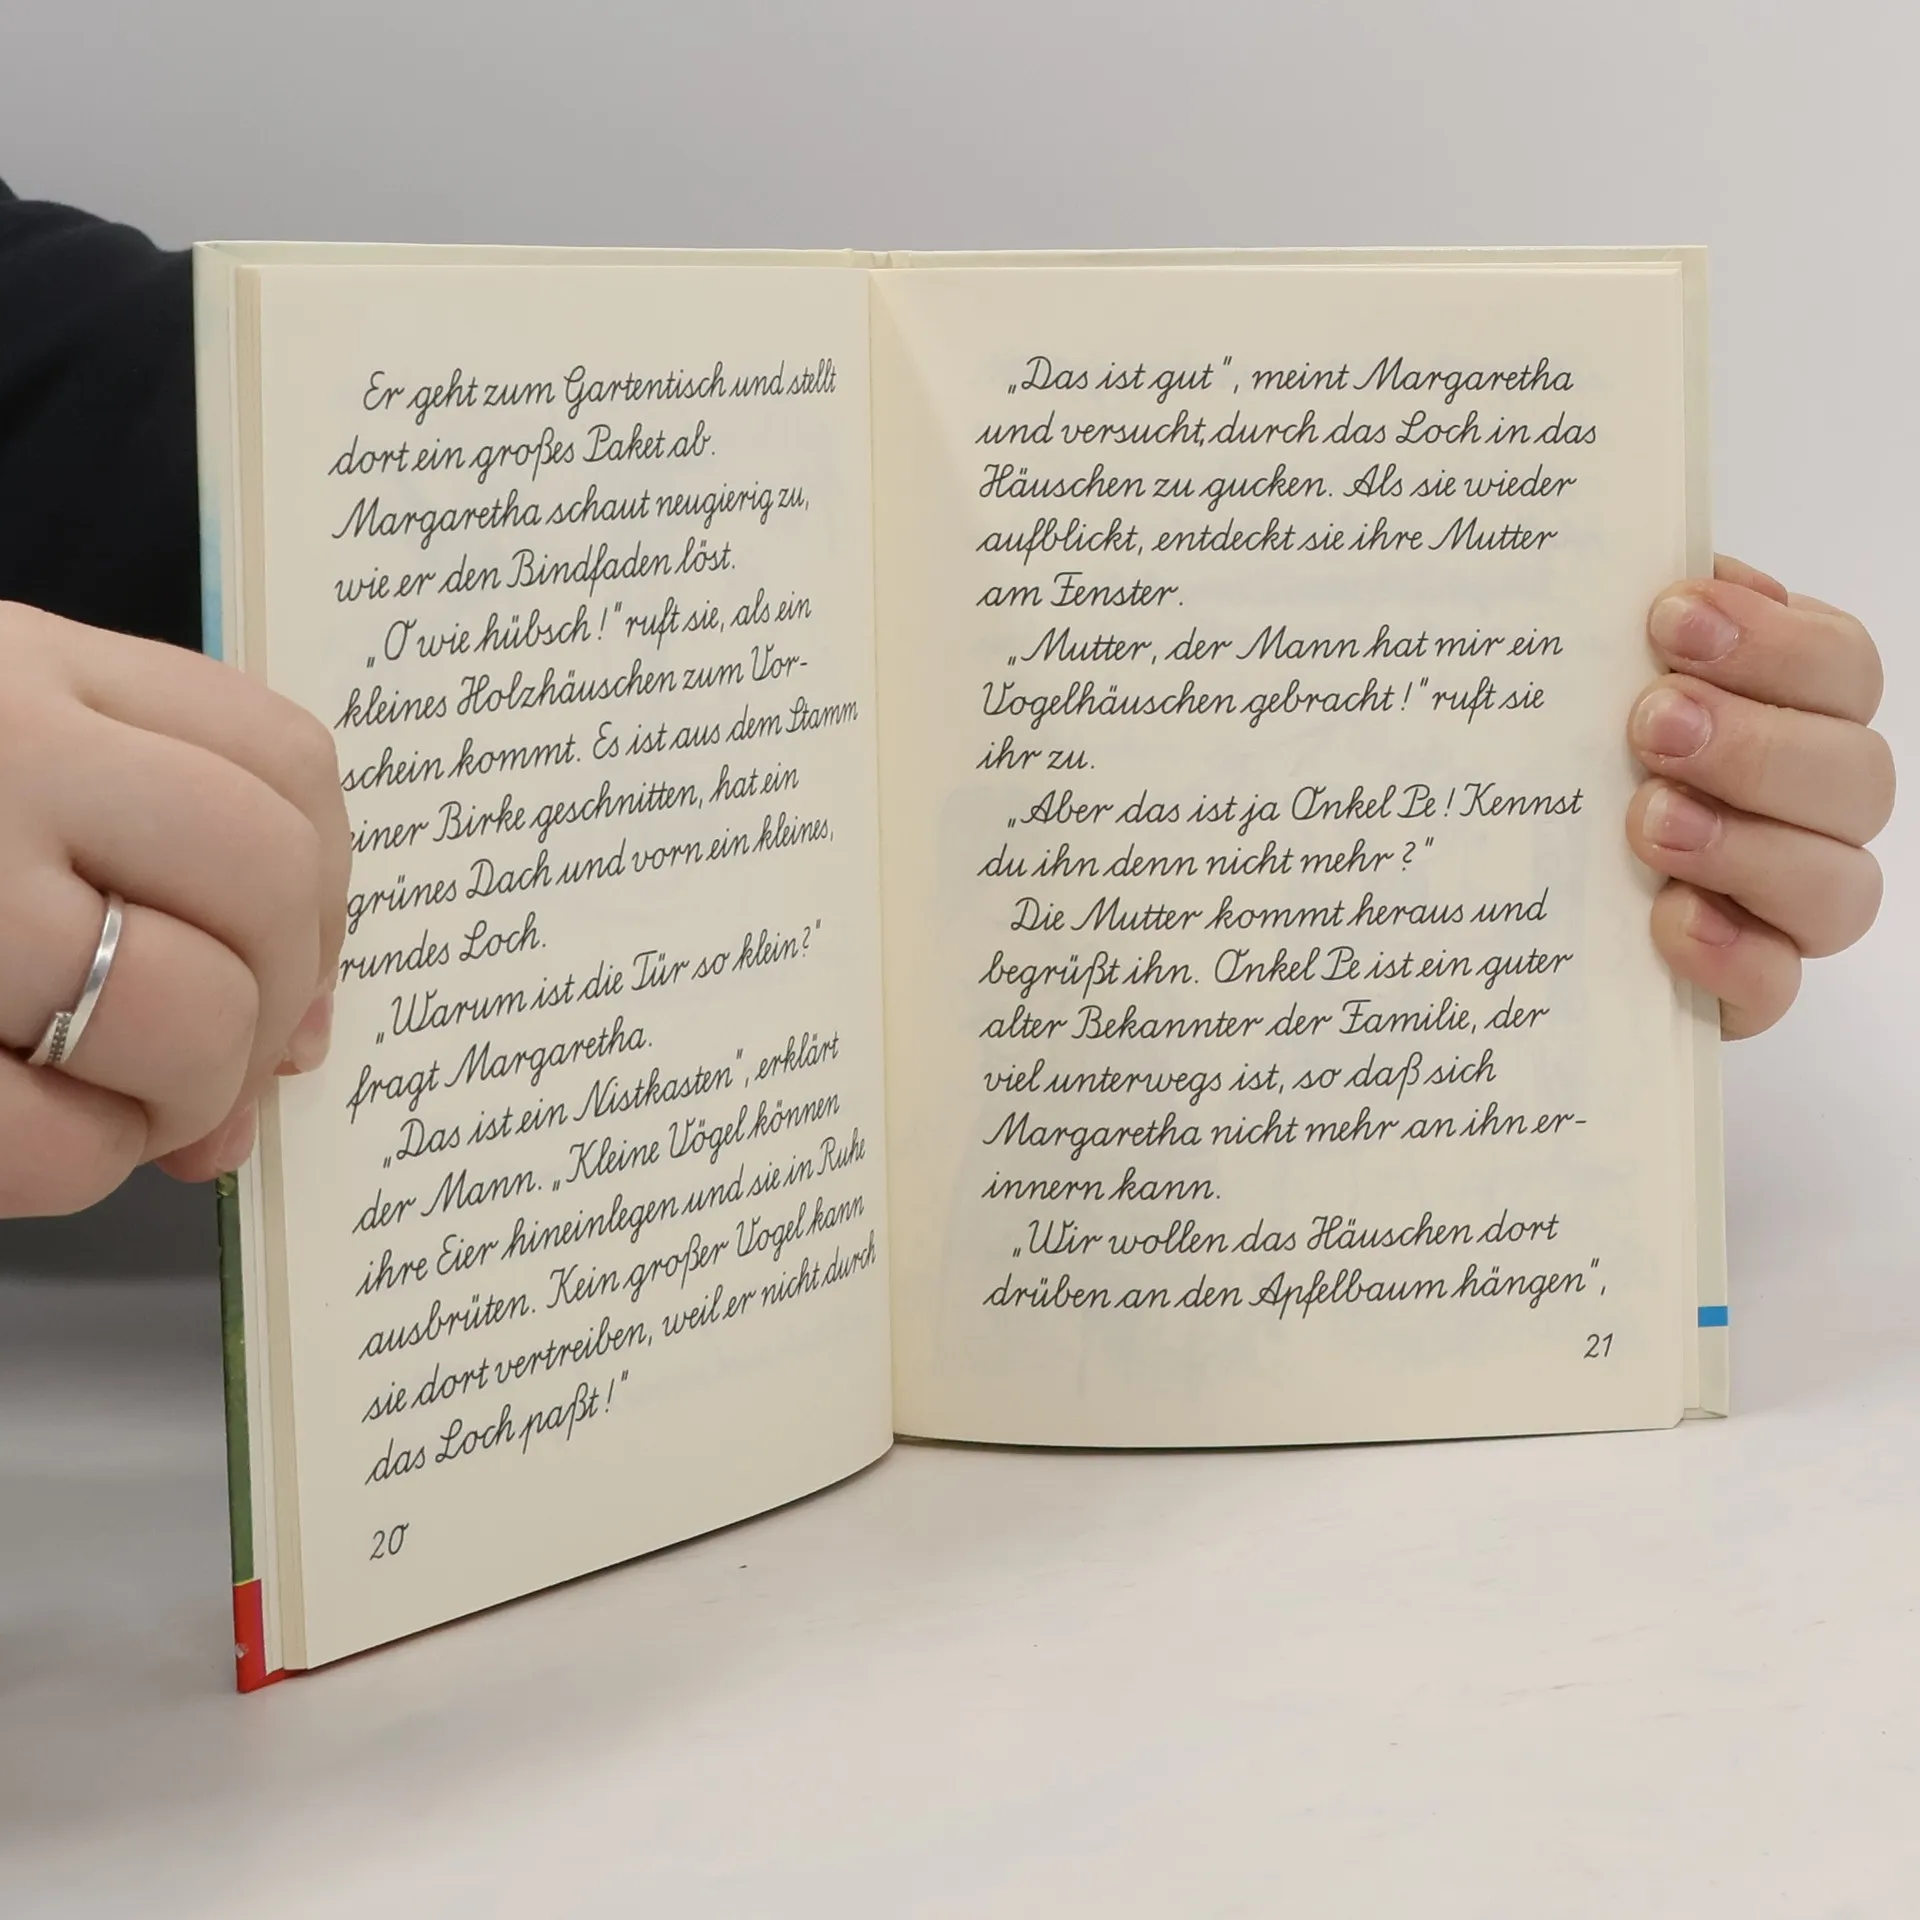 Er geht zum Gartentisch und stellt
dort ein großes Paket ab.
Margaretha schaut neugierig zu,
wie er den Bindfaden löst.
„O wie hübsch!" ruft sie, als ein
kleines Holzhäuschen zum Vor-
schein kommt. Es ist aus dem Stamm
einer Birke geschnitten, hat ein
grünes Dach und vorn ein kleines,
rundes Loch.
„Warum ist die Tür so klein?"
fragt Margaretha.
„Das ist ein Nistkasten", erklärt
der Mann. „Kleine Vögel können
ihre Eier hineinlegen und sie in Ruhe
ausbrüten. Kein großer Vogel kann
sie dort vertreiben, weil er nicht durch
das Loch paßt!"
20
„Das ist gut", meint Margaretha
und versucht, durch das Loch in das
Häuschen zu gucken. Als sie wieder
aufblickt, entdeckt sie ihre Mutter
am Fenster.
„Mutter, der Mann hat mir ein
Vogelhäuschen gebracht!" ruft sie
ihr zu.
„Aber das ist ja Onkel Pe! Kennst
du ihn denn nicht mehr?"
Die Mutter kommt heraus und
begrüßt ihn. Onkel Pe ist ein guter
alter Bekannter der Familie, der
viel unterwegs ist, so daß sich
Margaretha nicht mehr an ihn er-
innern kann.
„Wir wollen das Häuschen dort
drüben an den Apfelbaum hängen",
21